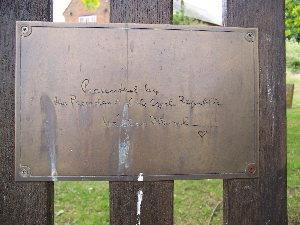 Presented by
the President of the Czech Republic
Václav Havel